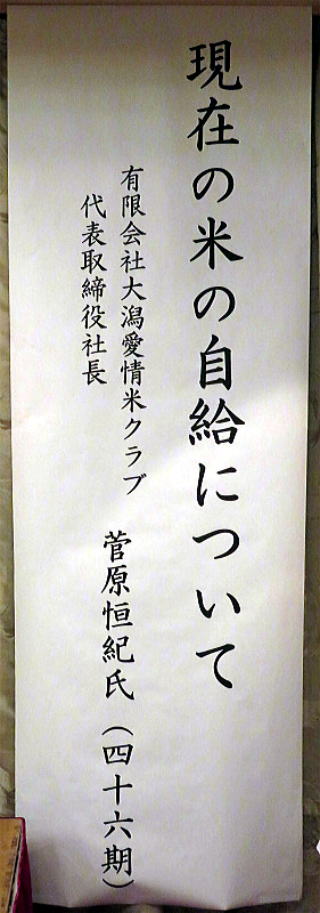 現在の米の自給について
有限会社大潟愛情米クラブ
代表取締役社長
菅原恒紀氏（四十六期）